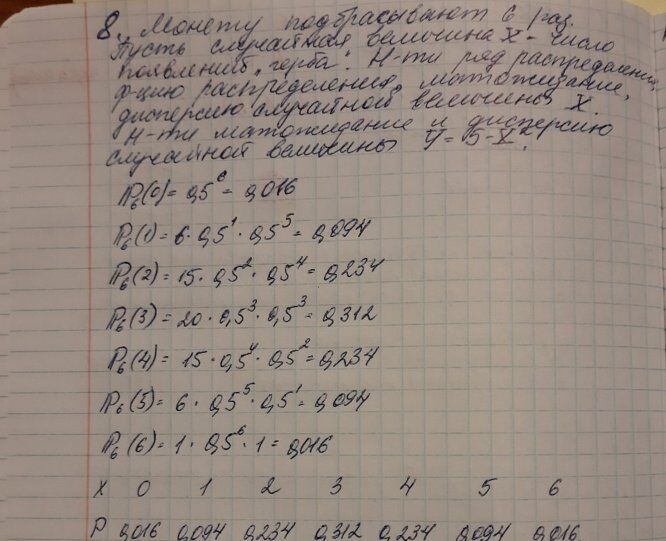 8. Монету подбрасывают 6 раз.
Пусть случайная величина X - число
появлений „герба". Н-ти ряд распределения,
ф-цию распределения, матожидание,
дисперсию случайной величины X.
Н-ти матожидание и дисперсию
случайной величины Y = 5 - X.
P₆(0) = 0,5⁶ = 0,016
P₆(1) = 6 · 0,5¹ · 0,5⁵ = 0,094
P₆(2) = 15 · 0,5² · 0,5⁴ = 0,234
P₆(3) = 20 · 0,5³ · 0,5³ = 0,312
P₆(4) = 15 · 0,5⁴ · 0,5² = 0,234
P₆(5) = 6 · 0,5⁵ · 0,5¹ = 0,094
P₆(6) = 1 · 0,5⁶ · 1 = 0,016
X 0 1 2 3 4 5 6
P 0,016 0,094 0,234 0,312 0,234 0,094 0,016